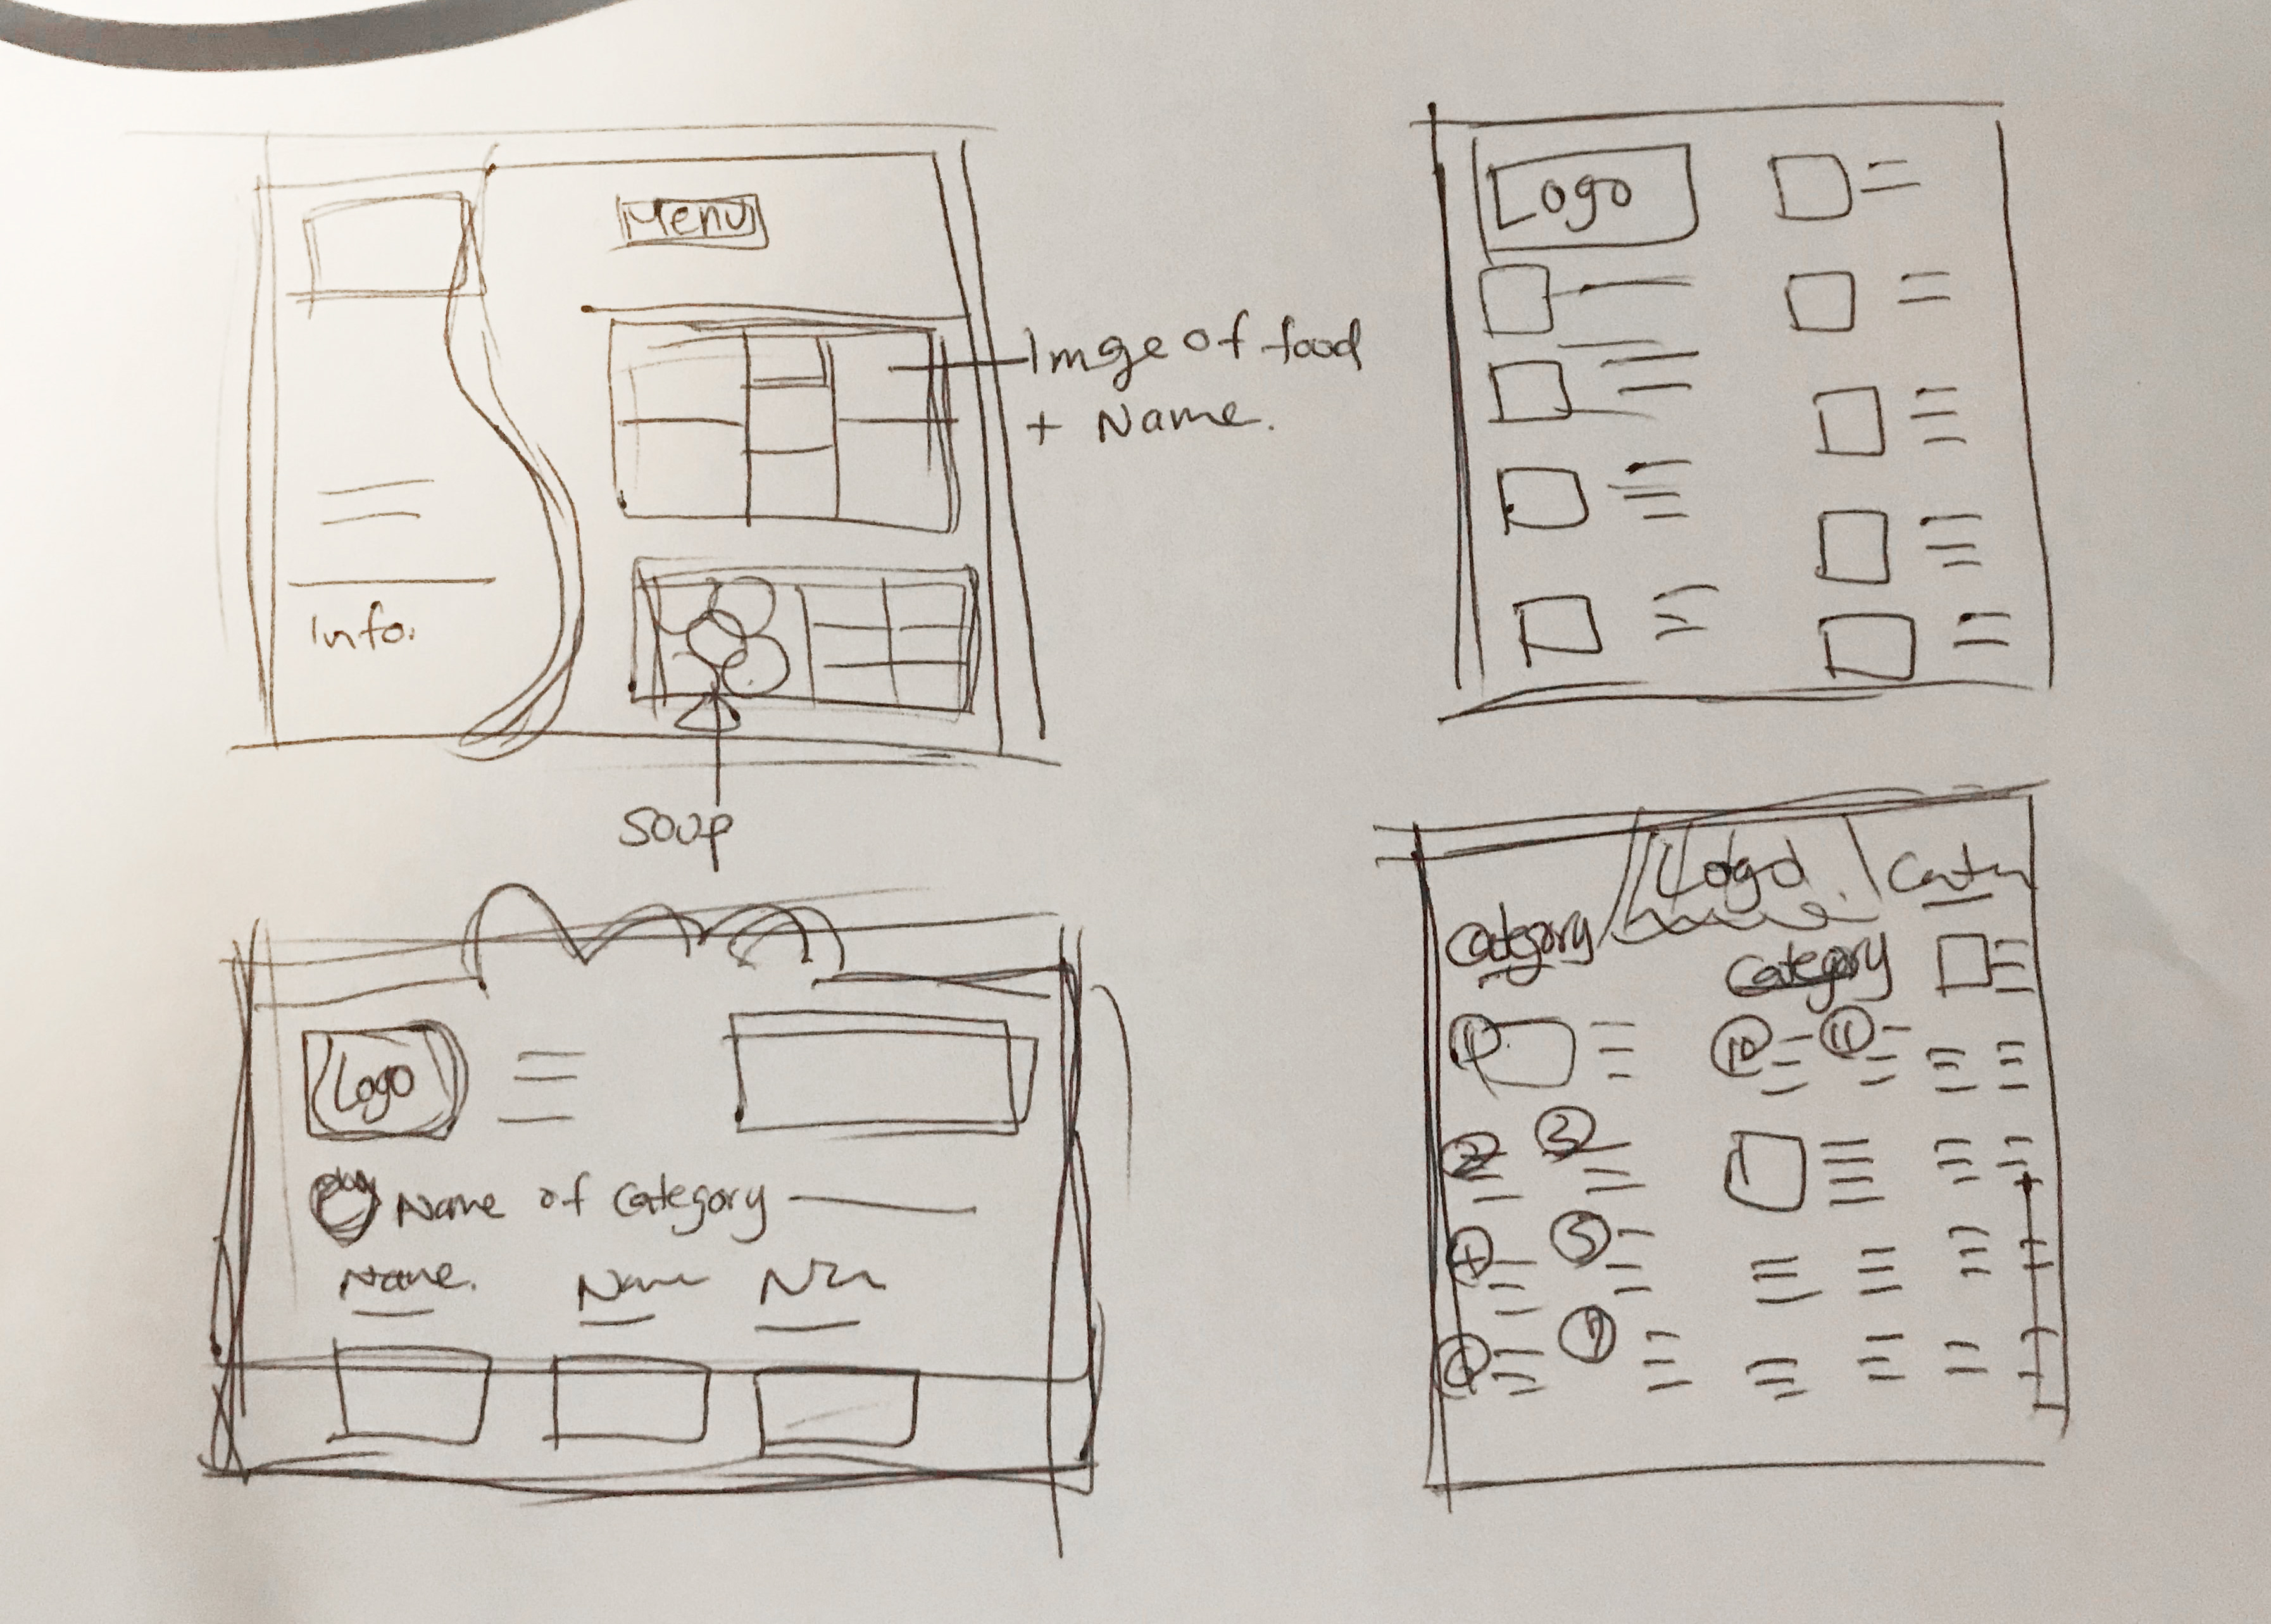 Menu
Imge of food
+ Name.
Info.
Soup
Logo
Logo
Name of Category
Name.
Name
Logo
Category
Category
1
10
11
2
3
4
5
6
7